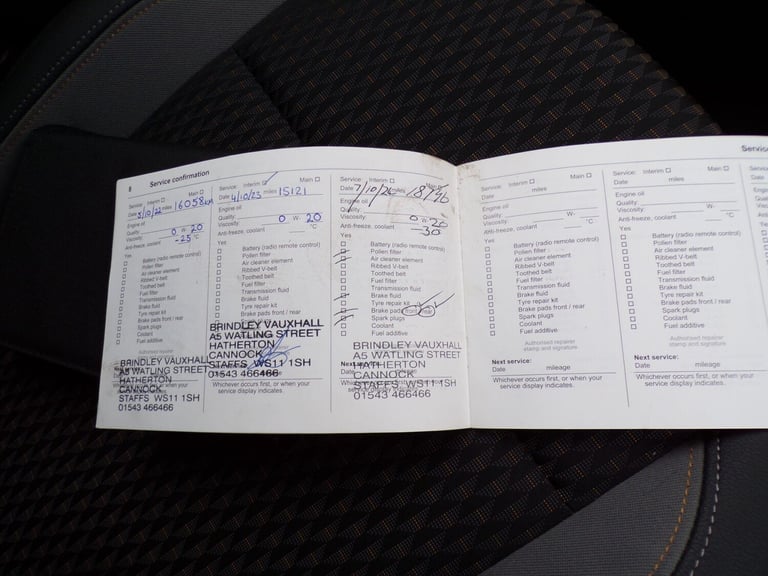 8 Service confirmation
Service: Interim Main
Date 5/10/22 miles 16058
Engine oil
Quality:
Viscosity: 0 W- 20
Anti-freeze, coolant -25 °C
Yes
Battery (radio remote control)
Pollen filter
Air cleaner element
Ribbed V-belt
Toothed belt
Fuel filter
Transmission fluid
Brake fluid
Tyre repair kit
Brake pads front / rear
Spark plugs
Coolant
Fuel additive
Authorised repairer
BRINDLEY VAUXHALL
A5 WATLING STREET
HATHERTON
CANNOCK
STAFFS WS11 1SH
01543 466466
Service: Interim Main
Date 4/10/23 miles 15121
Engine oil
Quality:
Viscosity: 0 W- 20
Anti-freeze, coolant °C
Yes
Battery (radio remote control)
Pollen filter
Air cleaner element
Ribbed V-belt
Toothed belt
Fuel filter
Transmission fluid
Brake fluid
Tyre repair kit
Brake pads front / rear
Spark plugs
BRINDLEY VAUXHALL
A5 WATLING STREET
HATHERTON
CANNOCK
STAFFS WS11 1SH
01543 466466
Whichever occurs first, or when your
service display indicates.
Service: Interim Main
Date 7/10/24 miles
Engine oil
Quality:
Viscosity: 0 W 20
Anti-freeze, coolant -30
Yes
Battery (radio remote control)
Pollen filter
Air cleaner element
Ribbed V-belt
Toothed belt
Fuel filter
Transmission fluid
Brake fluid
Tyre repair kit
Brake pads front / rear
Spark plugs
Coolant
Fuel additive
BRINDLEY VAUXHALL
A5 WATLING STREET
HATHERTON
CANNOCK
STAFFS WS11 1SH
01543 466466
Next service:
Date
Whichever occurs first, or when your
service display indicates.
Service: Interim Main
Date miles
Engine oil
Quality:
Viscosity: W-
Anti-freeze, coolant °C
Yes
Battery (radio remote control)
Pollen filter
Air cleaner element
Ribbed V-belt
Toothed belt
Fuel filter
Transmission fluid
Brake fluid
Tyre repair kit
Brake pads front / rear
Spark plugs
Coolant
Fuel additive
Authorised repairer
stamp and signature
Next service:
Date mileage
Whichever occurs first, or when your
service display indicates.
Service: Interim Main
Date miles
Engine oil
Quality:
Viscosity: W-
Anti-freeze, coolant °C
Yes
Battery (radio remote control)
Pollen filter
Air cleaner element
Ribbed V-belt
Toothed belt
Fuel filter
Transmission fluid
Brake fluid
Tyre repair kit
Brake pads front / rear
Spark plugs
Coolant
Fuel additive
Authorised repairer
stamp and signature
Next service:
Date mileage
Whichever occurs first, or when your
service display indicates.